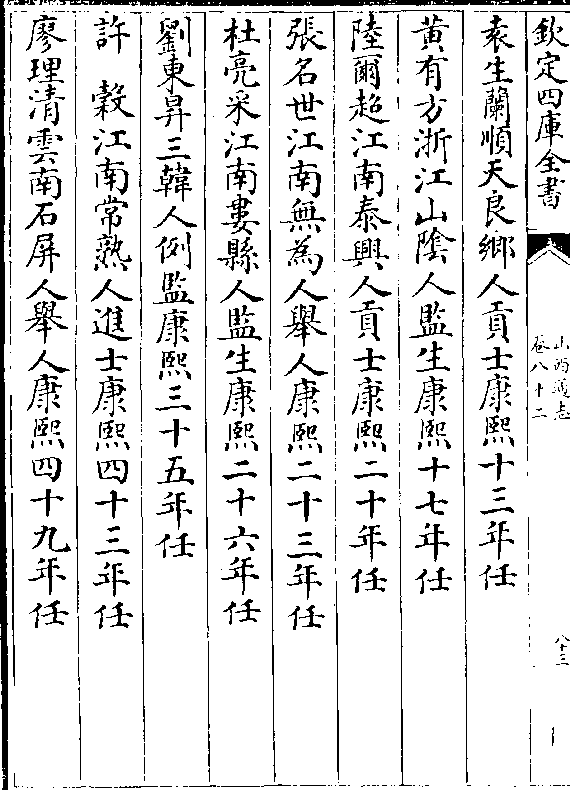 欽定四庫全書
山西通志
卷八十二
八十三
袁生蘭順天良鄉人貢士康熙十三年任
黃有方浙江山陰人監生康熙十七年任
陸爾超江南泰興人貢士康熙二十年任
張名世江南無為人舉人康熙二十三年任
杜亮采江南婁縣人監生康熙二十六年任
劉東昇三韓人例監康熙三十五年任
許 穀江南常熟人進士康熙四十三年任
廖理清雲南石屏人舉人康熙四十九年任